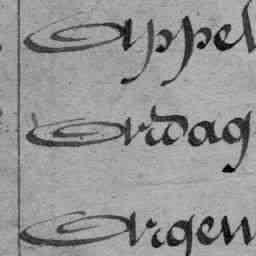 Appel
Ardag
Argen